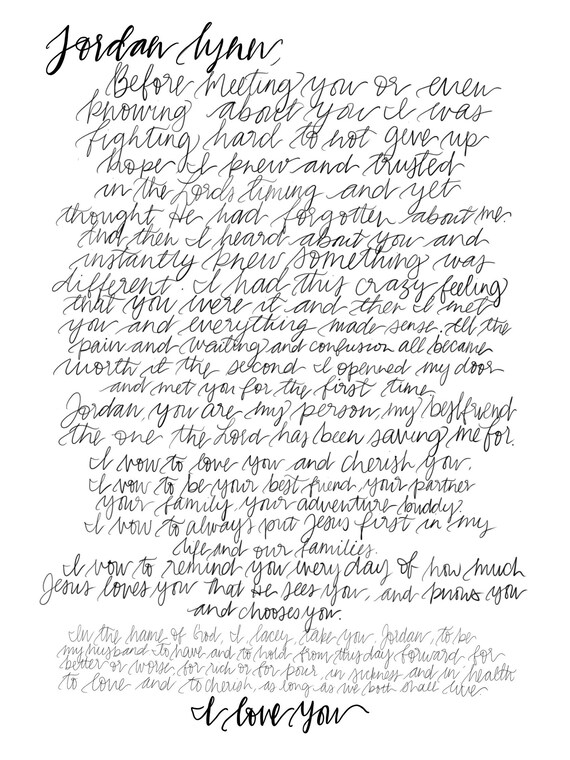 Jordan Lynn,
Before meeting you or even
knowing about you I was
fighting hard to not give up
hope I knew and trusted
in the Lord's timing and yet
thought He had forgotten about me.
And then I heard about you and
instantly knew something was
different. I had this crazy feeling
that you were it and then I met
you and everything made sense. All the
pain and waiting and confusion all became
worth it the second I opened my door
and met you for the first time.
Jordan, you are my person, my bestfriend
the one the Lord has been saving me for.
I vow to love you and cherish you.
I vow to be your best friend, your partner
your family, your adventure buddy.
I vow to always put Jesus first in my
life and our families.
I vow to remind you every day of how much
Jesus loves you that He sees you, and knows you
and chooses you.
In the name of God, I, Lacey, take you, Jordan, to be
my husband to have and to hold from this day forward for
better or worse, for rich or for pour, in sickness and in health
to love and to cherish, as long as we both shall live
I love you